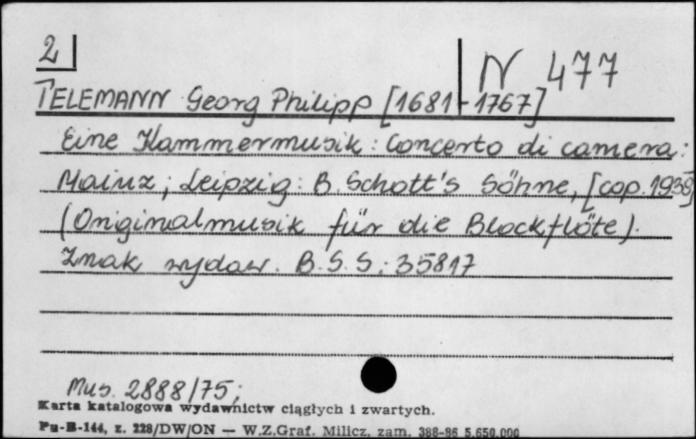 2
N 477
TELEMANN Georg Philipp [1681-1767]
Eine Kammermusik : Concerto di camera :
Mainz ; Leipzig : B. Schott's Söhne, [cop. 1939]
(Originalmusik für die Blockflöte).
Znak wydaw. B.S.S. 35817
Mus. 2888/75;
Karta katalogowa wydawnictw ciągłych i zwartych.
Pu-B-144, z. 228/DW/ON — W.Z.Graf. Milicz, zam. 388-86 5.650.000